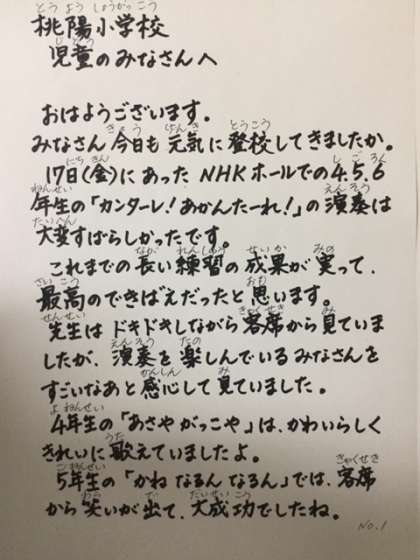 桃陽小学校
児童のみなさんへ
おはようございます。
みなさん今日も元気に登校してきましたか。
17日(金)にあったNHKホールでの4.5.6
年生の「カンターレ!あかんたーれ!」の演奏は
大変すばらしかったです。
これまでの長い練習の成果が実って、
最高のできばえだったと思います。
先生はドキドキしながら客席から見ていま
したが、演奏を楽しんでいるみなさんを
すごいなあと感心して見ていました。
4年生の「あさや がっこや」は、かわいらしく
きれいに歌えていましたよ。
5年生の「かね なるん なるん」では、客席
から笑いが出て、大成功でしたね。
No.1